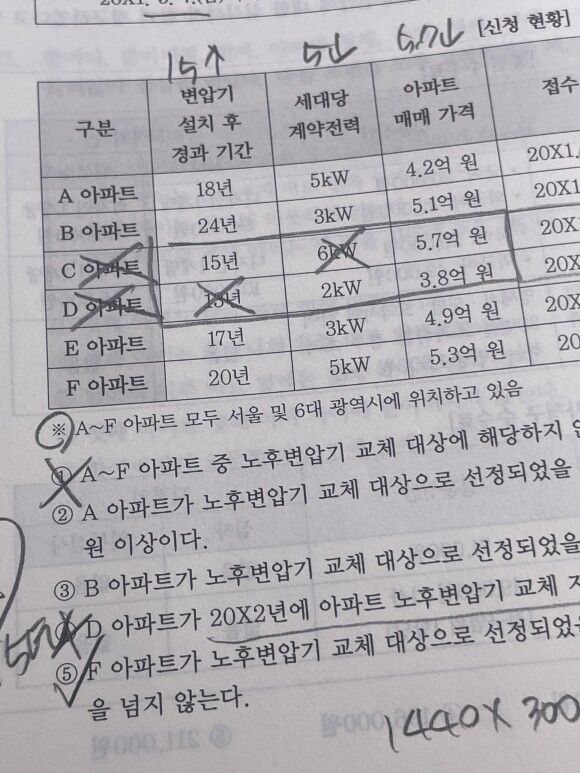 15↑ 5↓ 6.7↓ [신청 현황]
구분 변압기 설치 후 경과 기간 세대당 계약전력 아파트 매매 가격 접수
A 아파트 18년 5kW 4.2억 원 20X1.
B 아파트 24년 3kW 5.1억 원 20X1
C 아파트 15년 6kW 5.7억 원 20X
D 아파트 13년 2kW 3.8억 원 20X
E 아파트 17년 3kW 4.9억 원 20X
F 아파트 20년 5kW 5.3억 원 20
※ A~F 아파트 모두 서울 및 6대 광역시에 위치하고 있음
① A~F 아파트 중 노후변압기 교체 대상에 해당하지 않
② A 아파트가 노후변압기 교체 대상으로 선정되었을
원 이상이다.
③ B 아파트가 노후변압기 교체 대상으로 선정되었을
④ D 아파트가 20X2년에 아파트 노후변압기 교체 지
⑤ F 아파트가 노후변압기 교체 대상으로 선정되었을
을 넘지 않는다.
1440X300